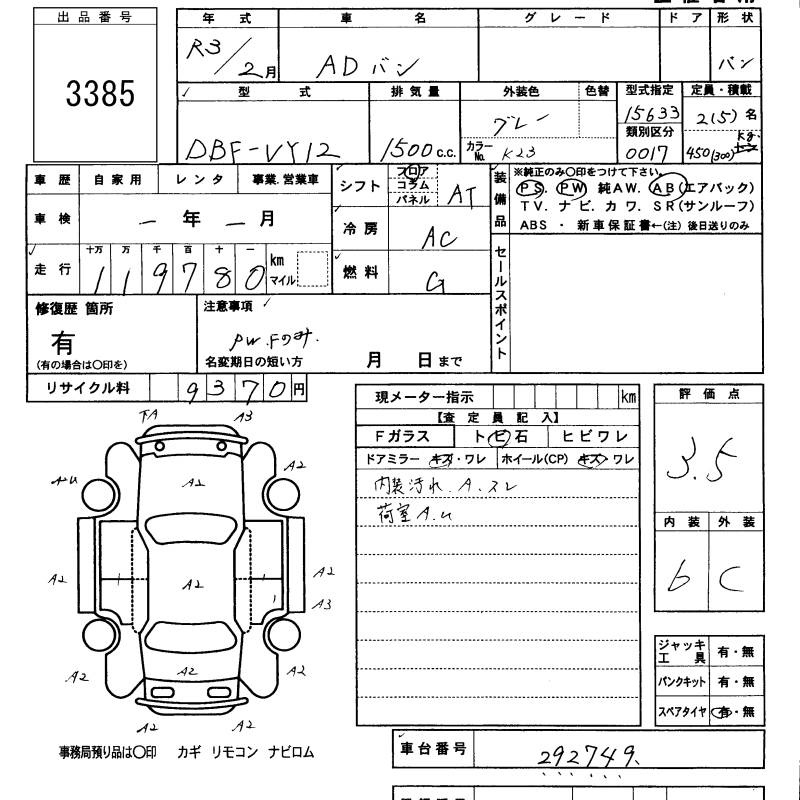 出品番号
3385
年式 車名 グレード ドア 形状
R3/2月 ADバン バン
型式 排気量 外装色 色替 型式指定 定員・積載
DBF-VY12 1500c.c. グレー 15633 2(5)名
カラーNo. K23 類別区分 0017 450(300)kg
車歴 自家用 レンタ 事業.営業車
車検 ー年ー月
走行 十万 万 千 百 十 一
119780 km マイル
シフト フロア コラム パネル AT
冷房 AC
燃料 G
装備品 ※純正のみ〇印をつけて下さい。
PS. PW 純AW. AB(エアバック)
TV. ナビ. カワ. SR(サンルーフ)
ABS ・ 新車保証書←(注)後日送りのみ
セールスポイント
修復歴 箇所
有
(有の場合は〇印を)
注意事項
PW.Fのみ.
名変期日の短い方 月 日まで
リサイクル料 9370円
現メーター指示 km
【査定員記入】
Fガラス トビ石 ヒビワレ
ドアミラー キズ・ワレ ホイール(CP) キズ・ワレ
内装汚れ. A.スレ
荷室A.U
評価点
3.5
内装 外装
b C
下A A3
A2U A2 A2
A2 A2 A2
A3
A2 A2 A2
A2 A2
ジャッキ工具 有・無
パンクキット 有・無
スペアタイヤ 有・無
事務局預り品は〇印 カギ リモコン ナビロム
車台番号 292749